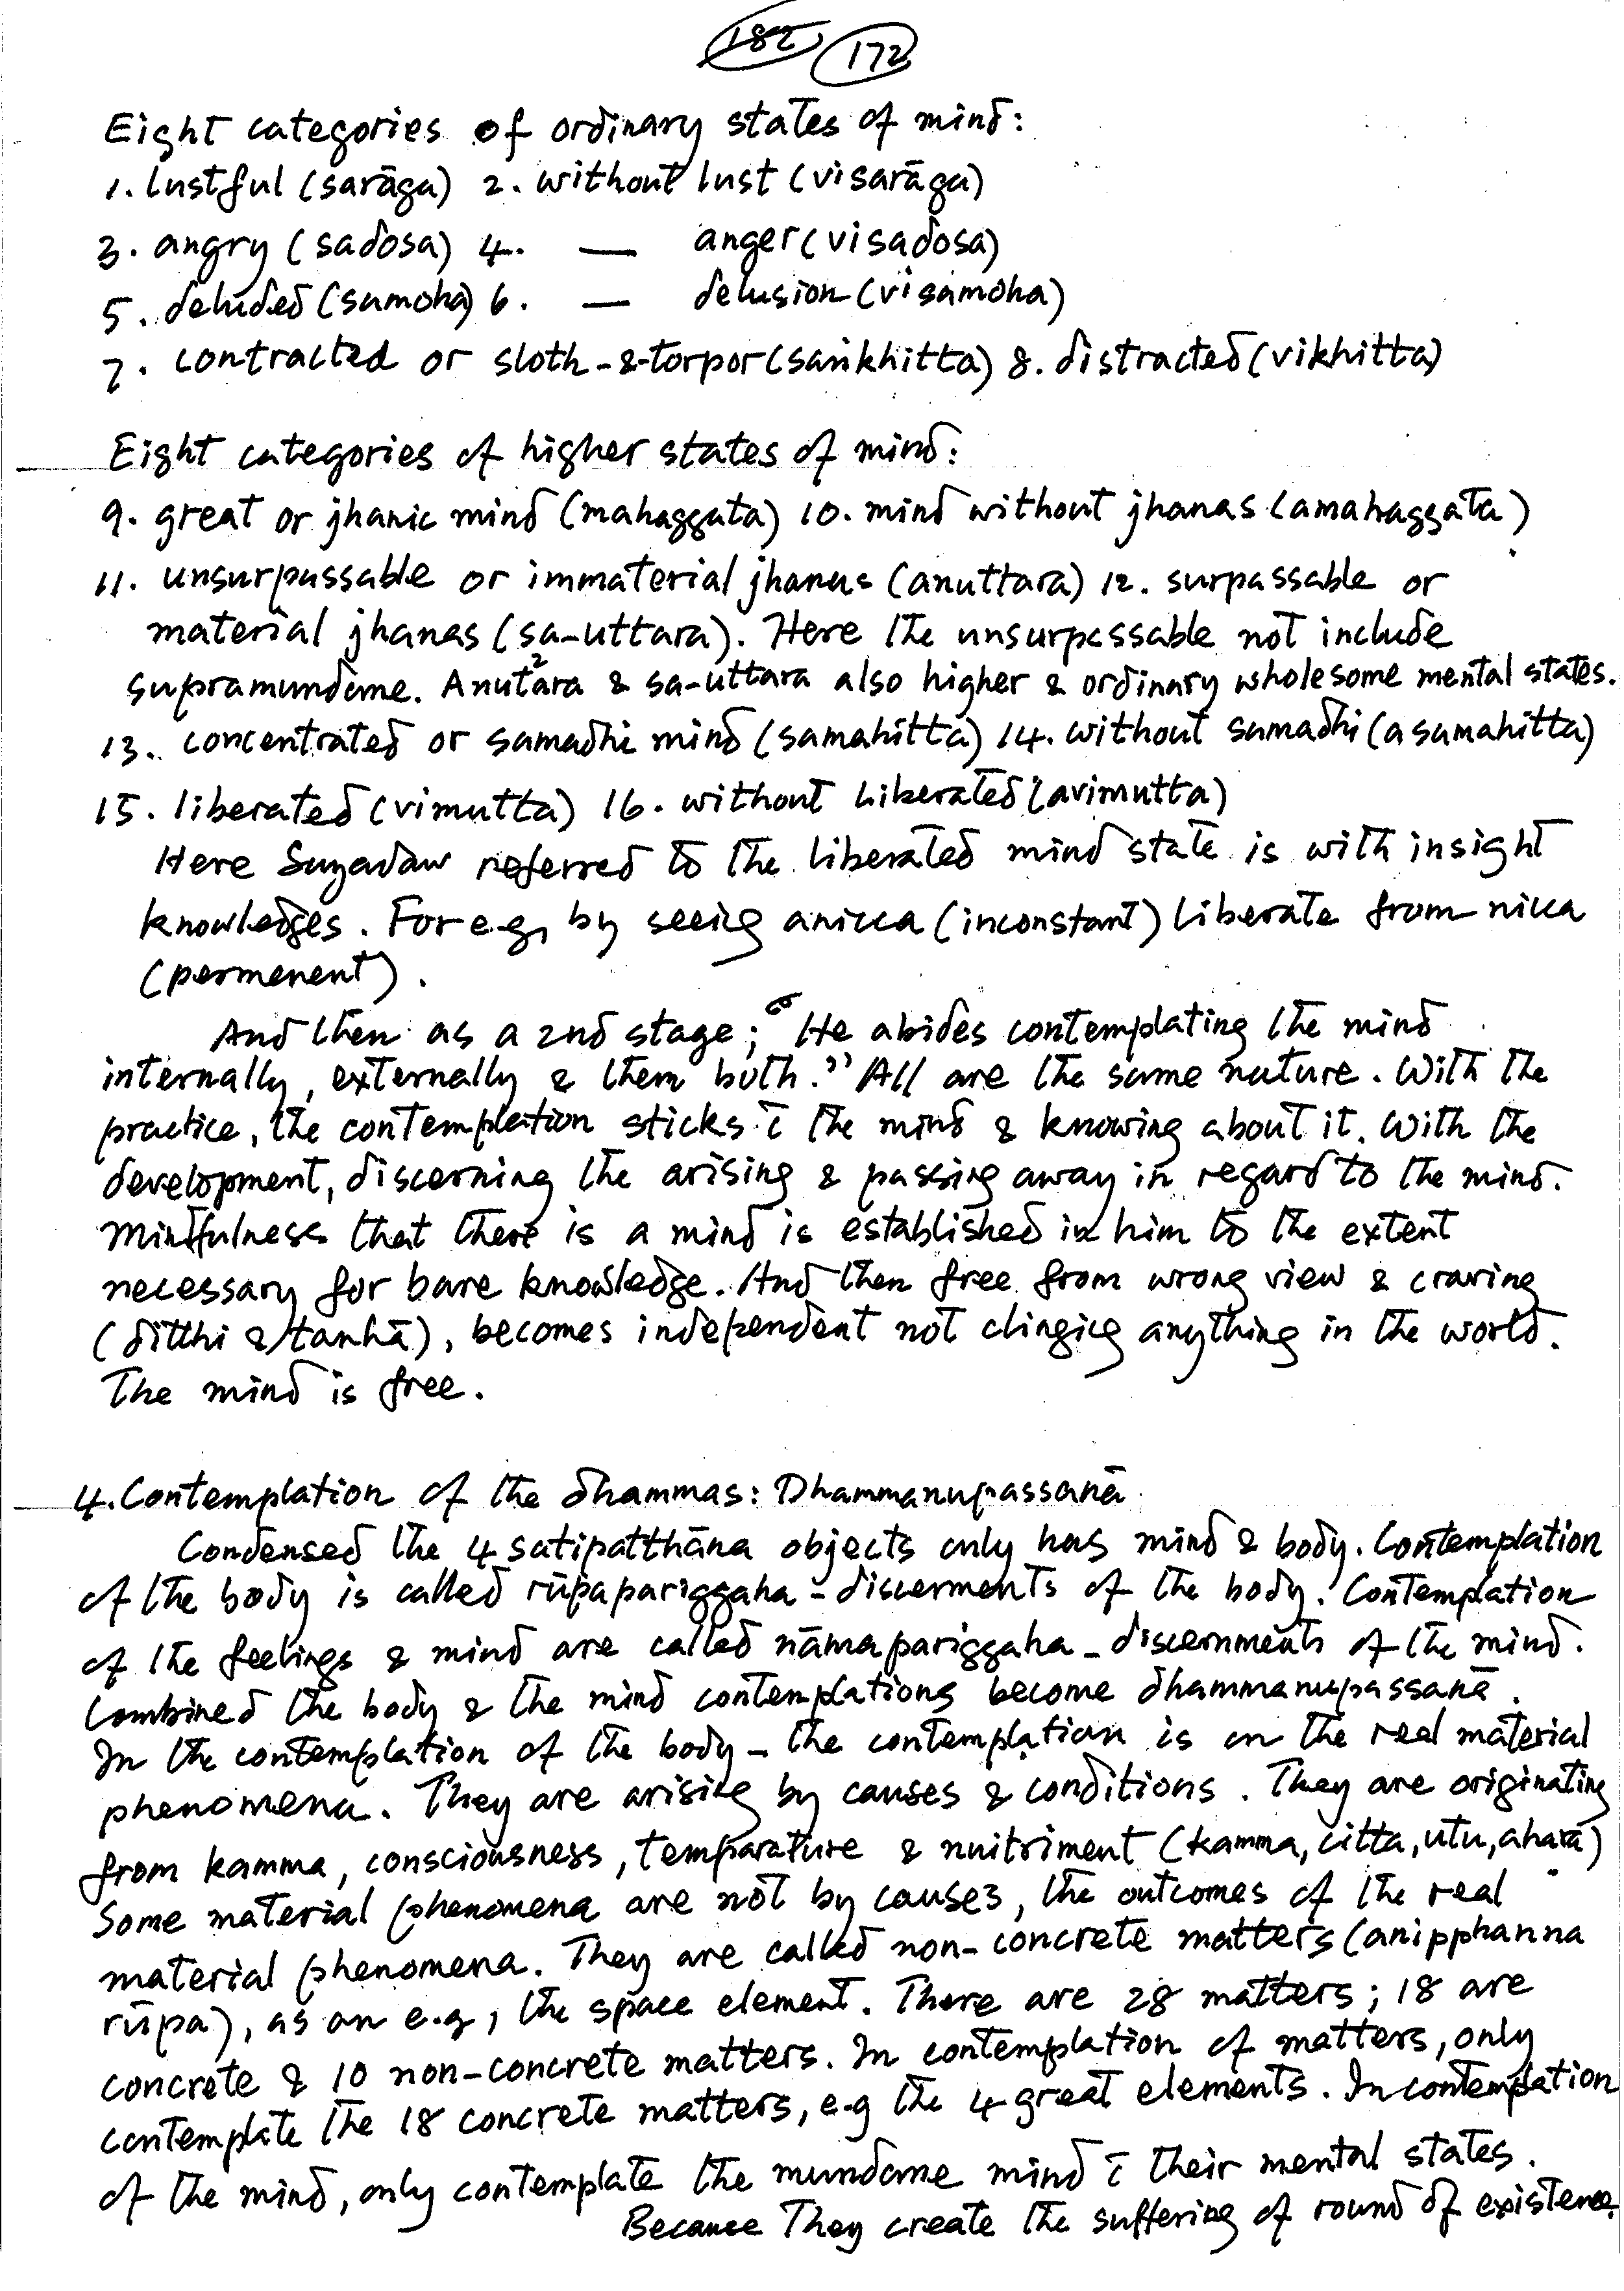 182 172
Eight categories of ordinary states of mind:
1. lustful (sarāga) 2. without lust (visarāga)
3. angry (sadosa) 4. — anger (visadosa)
5. deluded (samoha) 6. — delusion (visamoha)
7. contracted or sloth-&-torpor (saṅkhitta) 8. distracted (vikhitta)
Eight categories of higher states of mind:
9. great or jhanic mind (mahaggata) 10. mind without jhanas (amahaggata)
11. unsurpassable or immaterial jhanas (anuttara) 12. surpassable or
material jhanas (sa-uttara). Here the unsurpassable not include
supramundane. Anutara & sa-uttara also higher & ordinary wholesome mental states.
13. concentrated or samadhi mind (samahitta) 14. without samadhi (asamahitta)
15. liberated (vimutta) 16. without liberated (avimutta)
Here Sayadaw referred to the liberated mind state is with insight
knowledges. For e.g, by seeing anicca (inconstant) liberate from nicca
(permenent).
And then as a 2nd stage; "He abides contemplating the mind
internally, externally & them both." All are the same nature. With the
practice, the contemplation sticks c̄ the mind & knowing about it. With the
development, discerning the arising & passing away in regard to the mind.
Mindfulness that there is a mind is established in him to the extent
necessary for bare knowledge. And then free from wrong view & craving
(ditthi & tanhā), becomes independent not clinging anything in the world.
The mind is free.
4. Contemplation of the dhammas: Dhammanupassanā
Condensed the 4 satipatthāna objects only has mind & body. Contemplation
of the body is called rūpapariggaha - discerments of the body. Contemplation
of the feelings & mind are called nāmapariggaha - discernments of the mind.
Combined the body & the mind contemplations become dhammanupassanā.
In the contemplation of the body - the contemplation is on the real material
phenomena. They are arising by causes & conditions. They are originating
from kamma, consciousness, temparature & nuitriment (kamma, citta, utu, ahara)
Some material phenomena are not by causes, the outcomes of the real
material phenomena. They are called non-concrete matters (anipphanna
rūpa), as an e.g, the space element. There are 28 matters; 18 are
concrete & 10 non-concrete matters. In contemplation of matters, only
contemplate the 18 concrete matters, e.g the 4 great elements. In contemplation
of the mind, only contemplate the mundane mind c̄ their mental states.
Because they create the suffering of round of existence.